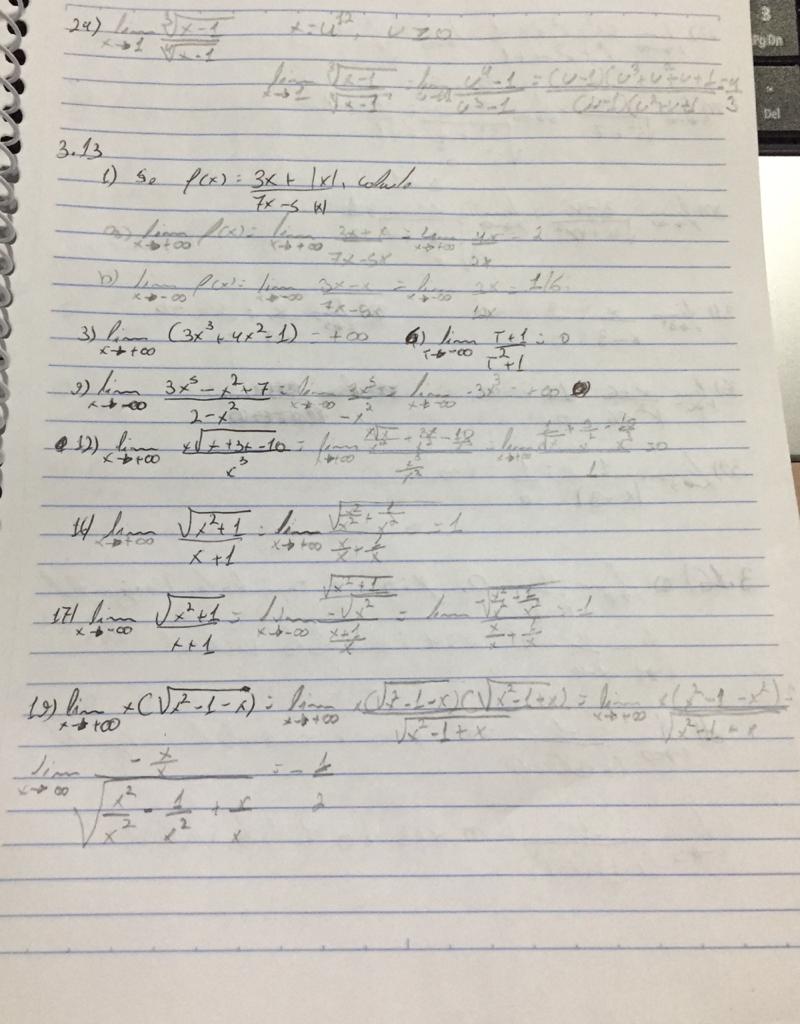 24) lim x→1 ∛x-1 / ∜x-1    x = u^12, u ≥ 0
lim x→1 ∛x-1 / ∜x-1 = lim u→1 u^4-1 / u^3-1 = (u-1)(u^3+u^2+u+1) / (u-1)(u^2+u+1) = 4/3
3.13
1) Se f(x) = 3x+|x| / 7x-5|x|, calcule
a) lim x→+∞ f(x) = lim x→+∞ 3x+x / 7x-5x = lim x→+∞ 4x / 2x = 2
b) lim x→-∞ f(x) = lim x→-∞ 3x-x / 7x-5x = lim x→-∞ 2x / 12x = 1/6
3) lim x→+∞ (3x^3+4x^2-1) = +∞    6) lim T→-∞ T+1 / T^2+1 = 0
9) lim x→-∞ 3x^5-x^2+7 / 2-x^2 = lim x→-∞ 3x^5 / -x^2 = lim x→-∞ -3x^3 = +∞
12) lim x→+∞ x√x+3x-10 / x^3 = lim x→+∞
16) lim x→+∞ √x^2+1 / x+1 = lim x→+∞ √x^2/x^2 + 1/x^2 / x/x + 1/x = 1
17) lim x→-∞ √x^2+1 / x+1 = lim x→-∞ √x^2+1 / -√x^2 / x+1 / x = lim -√x^2/x^2 + 1/x^2 / x/x + 1/x = -1
19) lim x→+∞ x(√x^2-1-x) = lim x→+∞ x(√x^2-1-x)(√x^2-1+x) / √x^2-1+x = lim x→+∞ x(x^2-1-x^2) =
lim x→∞ -x/x / √x^2/x^2 - 1/x^2 + x/x = -1/2